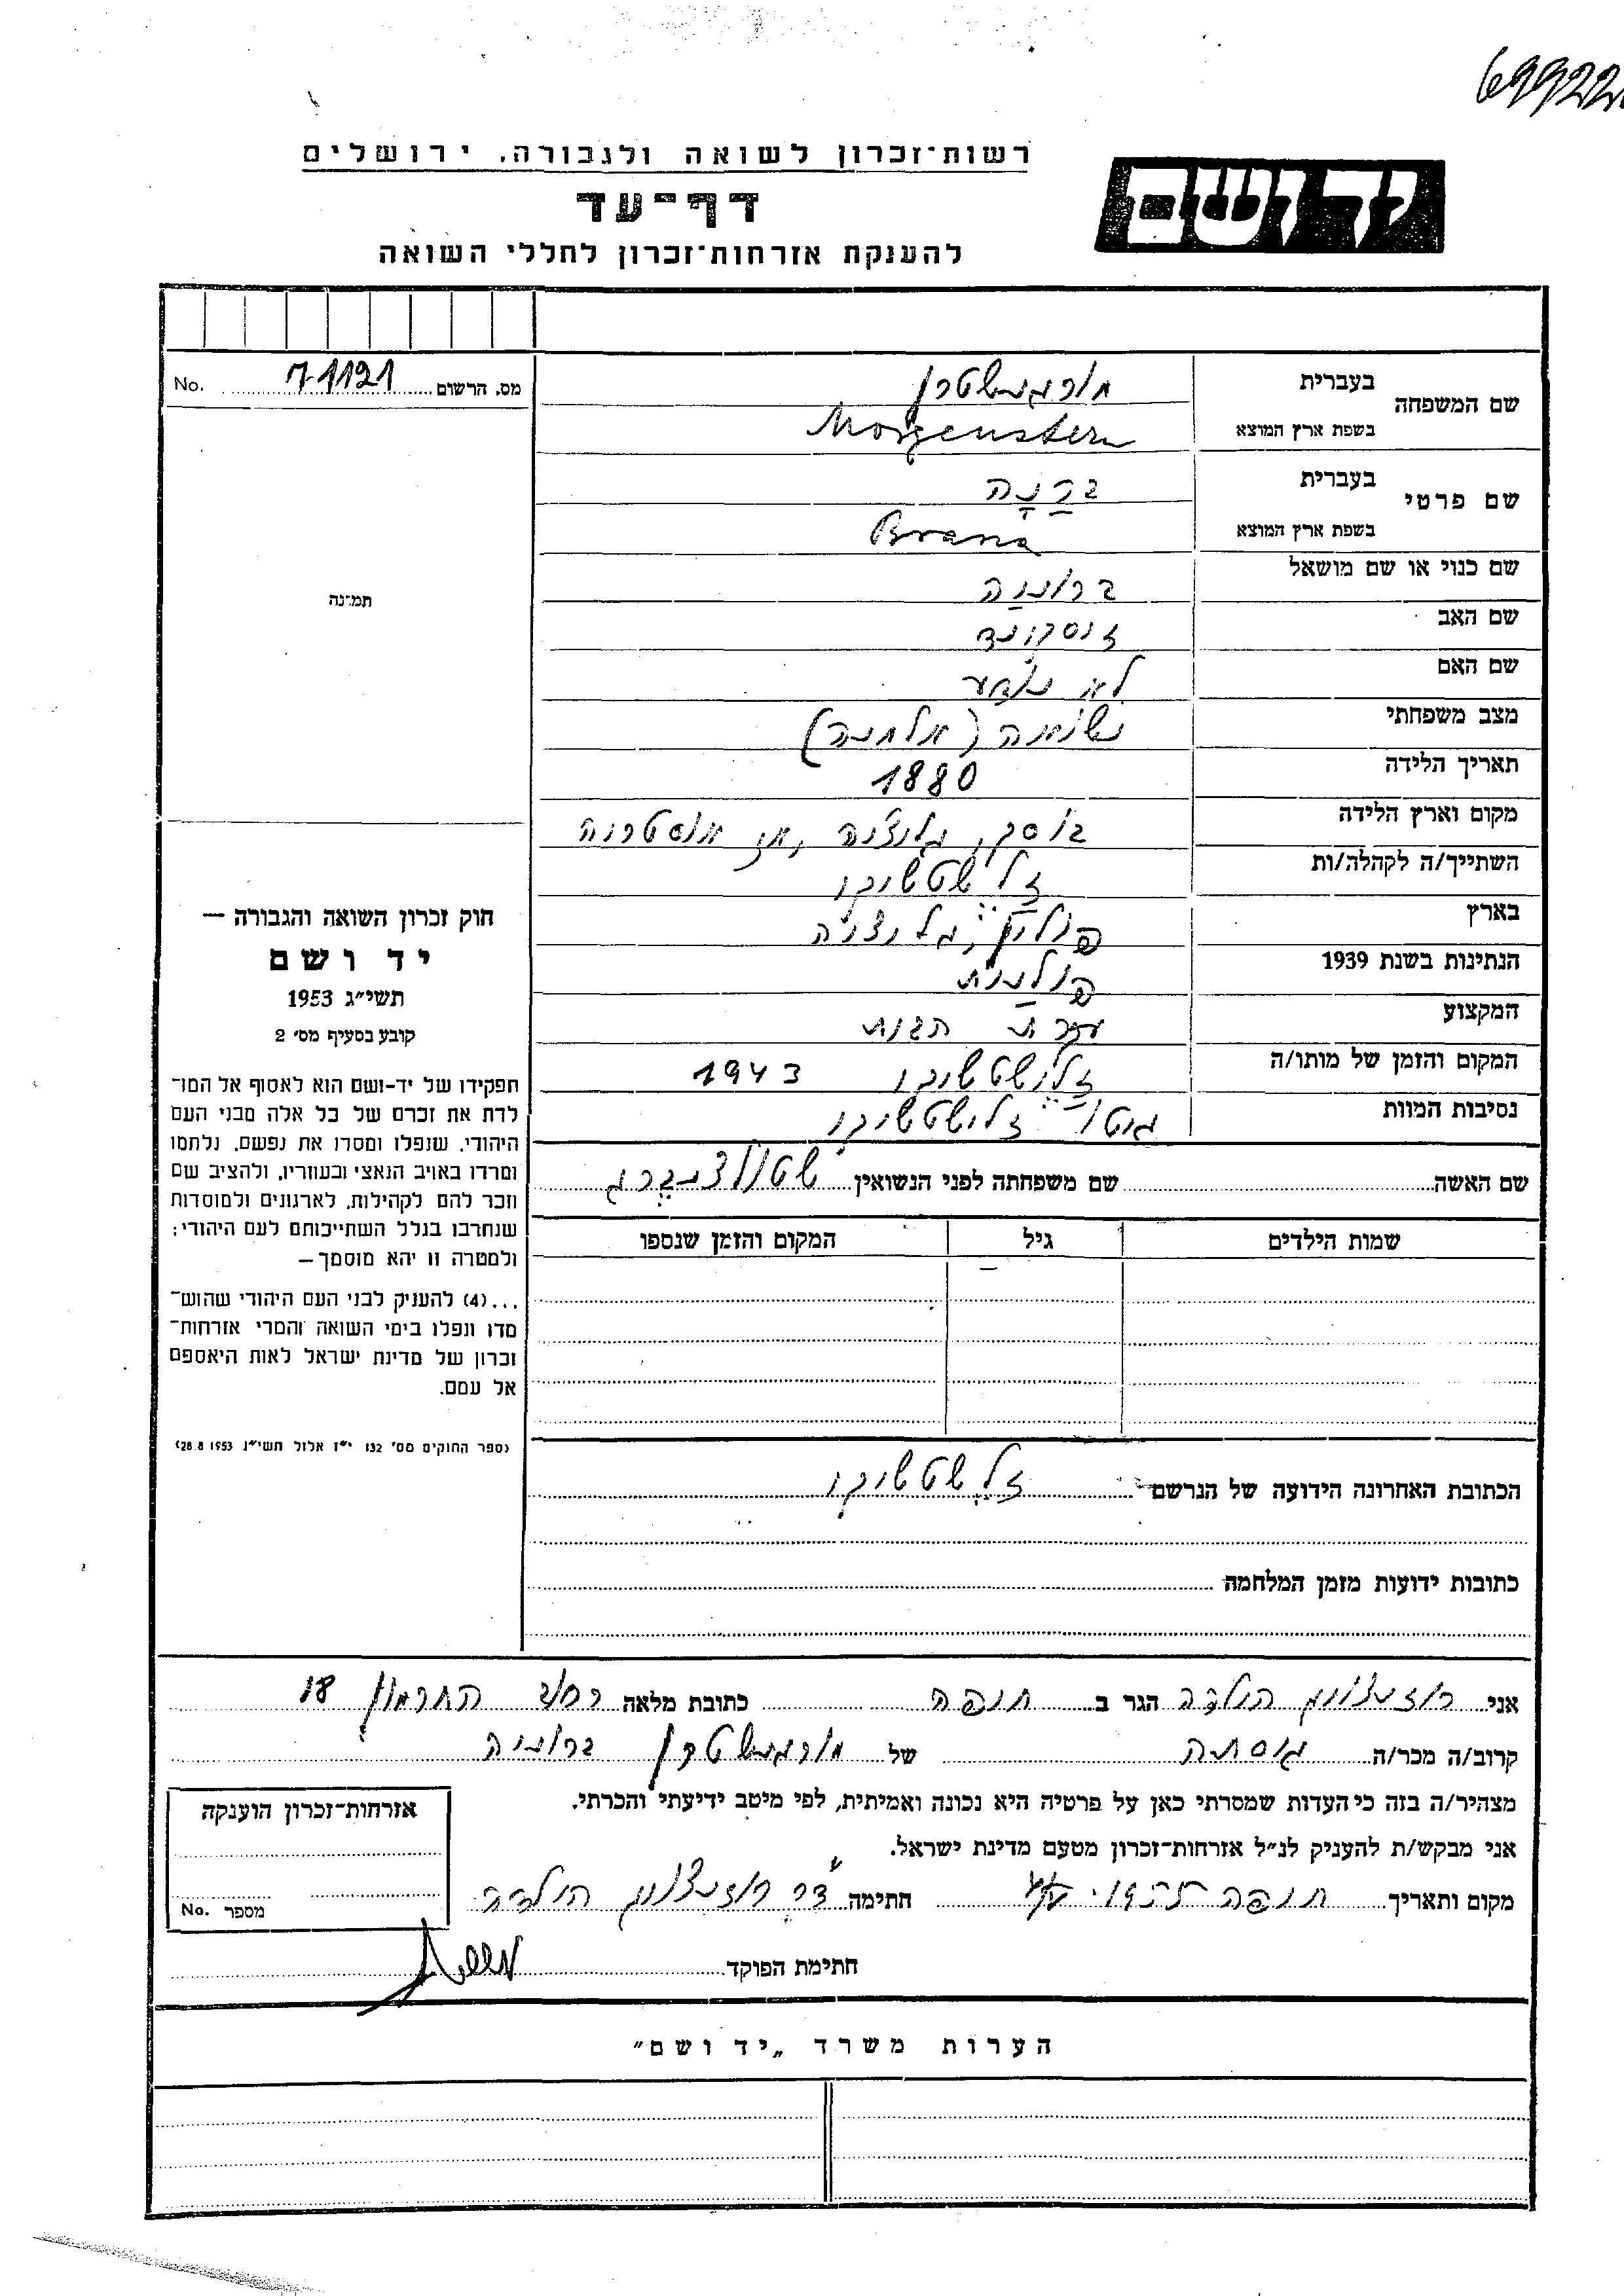 69922
רשות־זכרון לשואה ולגבורה, ירושלים
יד ושם
דף־עד
להענקת אזרחות־זכרון לחללי השואה
מס. הרשום 71121 No.
תמונה
שם המשפחה בעברית מורגנשטרן
בשפת ארץ המוצא Morgenstern
שם פרטי בעברית ברנה
בשפת ארץ המוצא Brana
שם כנוי או שם מושאל ברוניה
שם האב זיסקינד
שם האם לא נודע
מצב משפחתי נשואה (אלמנה)
תאריך הלידה 1880
מקום וארץ הלידה בוסק, גליציה, אז אוסטריה
השתייך/ה לקהלה/ות זלשטשיקי
בארץ פולין, גליציה
הנתינות בשנת 1939 פולנית
המקצוע עקרת הבית
המקום והזמן של מותו/ה זלישטשיקי 1943
נסיבות המוות גיטו זלישטשיקי
שם האשה שם משפחתה לפני הנשואין שטולצנברג
שמות הילדים גיל המקום והזמן שנספו
הכתובת האחרונה הידועה של הנרשם זלשטשיקי
כתובות ידועות מזמן המלחמה
חוק זכרון השואה והגבורה —
יד ושם
תשי״ג 1953
קובע בסעיף מס׳ 2
תפקידו של יד־ושם הוא לאסוף אל המו־
לדת את זכרם של כל אלה מבני העם
היהודי, שנפלו ומסרו את נפשם, נלחמו
ומרדו באויב הנאצי ובעוזריו, ולהציב שם
וזכר להם לקהילות, לארגונים ולמוסדות
שנחרבו בגלל השתייכותם לעם היהודי;
ולמטרה זו יהא מוסמך —
...(4) להעניק לבני העם היהודי שהוש־
מדו ונפלו בימי השואה והמרי אזרחות־
זכרון של מדינת ישראל לאות היאספם
אל עמם.
(ספר החוקים מס׳ 132 י״ז אלול תשי״ג 28.8.1953)
אני רוזנצוויג הילדה הגר ב חיפה כתובת מלאה רחוב החרמון 18
קרוב/ה מכר/ה גיסתה של מורגנשטרן ברוניה
מצהיר/ה בזה כי העדות שמסרתי כאן על פרטיה היא נכונה ואמיתית, לפי מיטב ידיעתי והכרתי.
אני מבקש/ת להעניק לנ״ל אזרחות־זכרון מטעם מדינת ישראל.
מקום ותאריך חיפה חתימה דר רוזנצוויג הילדה
חתימת הפוקד
אזרחות־זכרון הוענקה
מספר No.
הערות משרד „יד ושם״